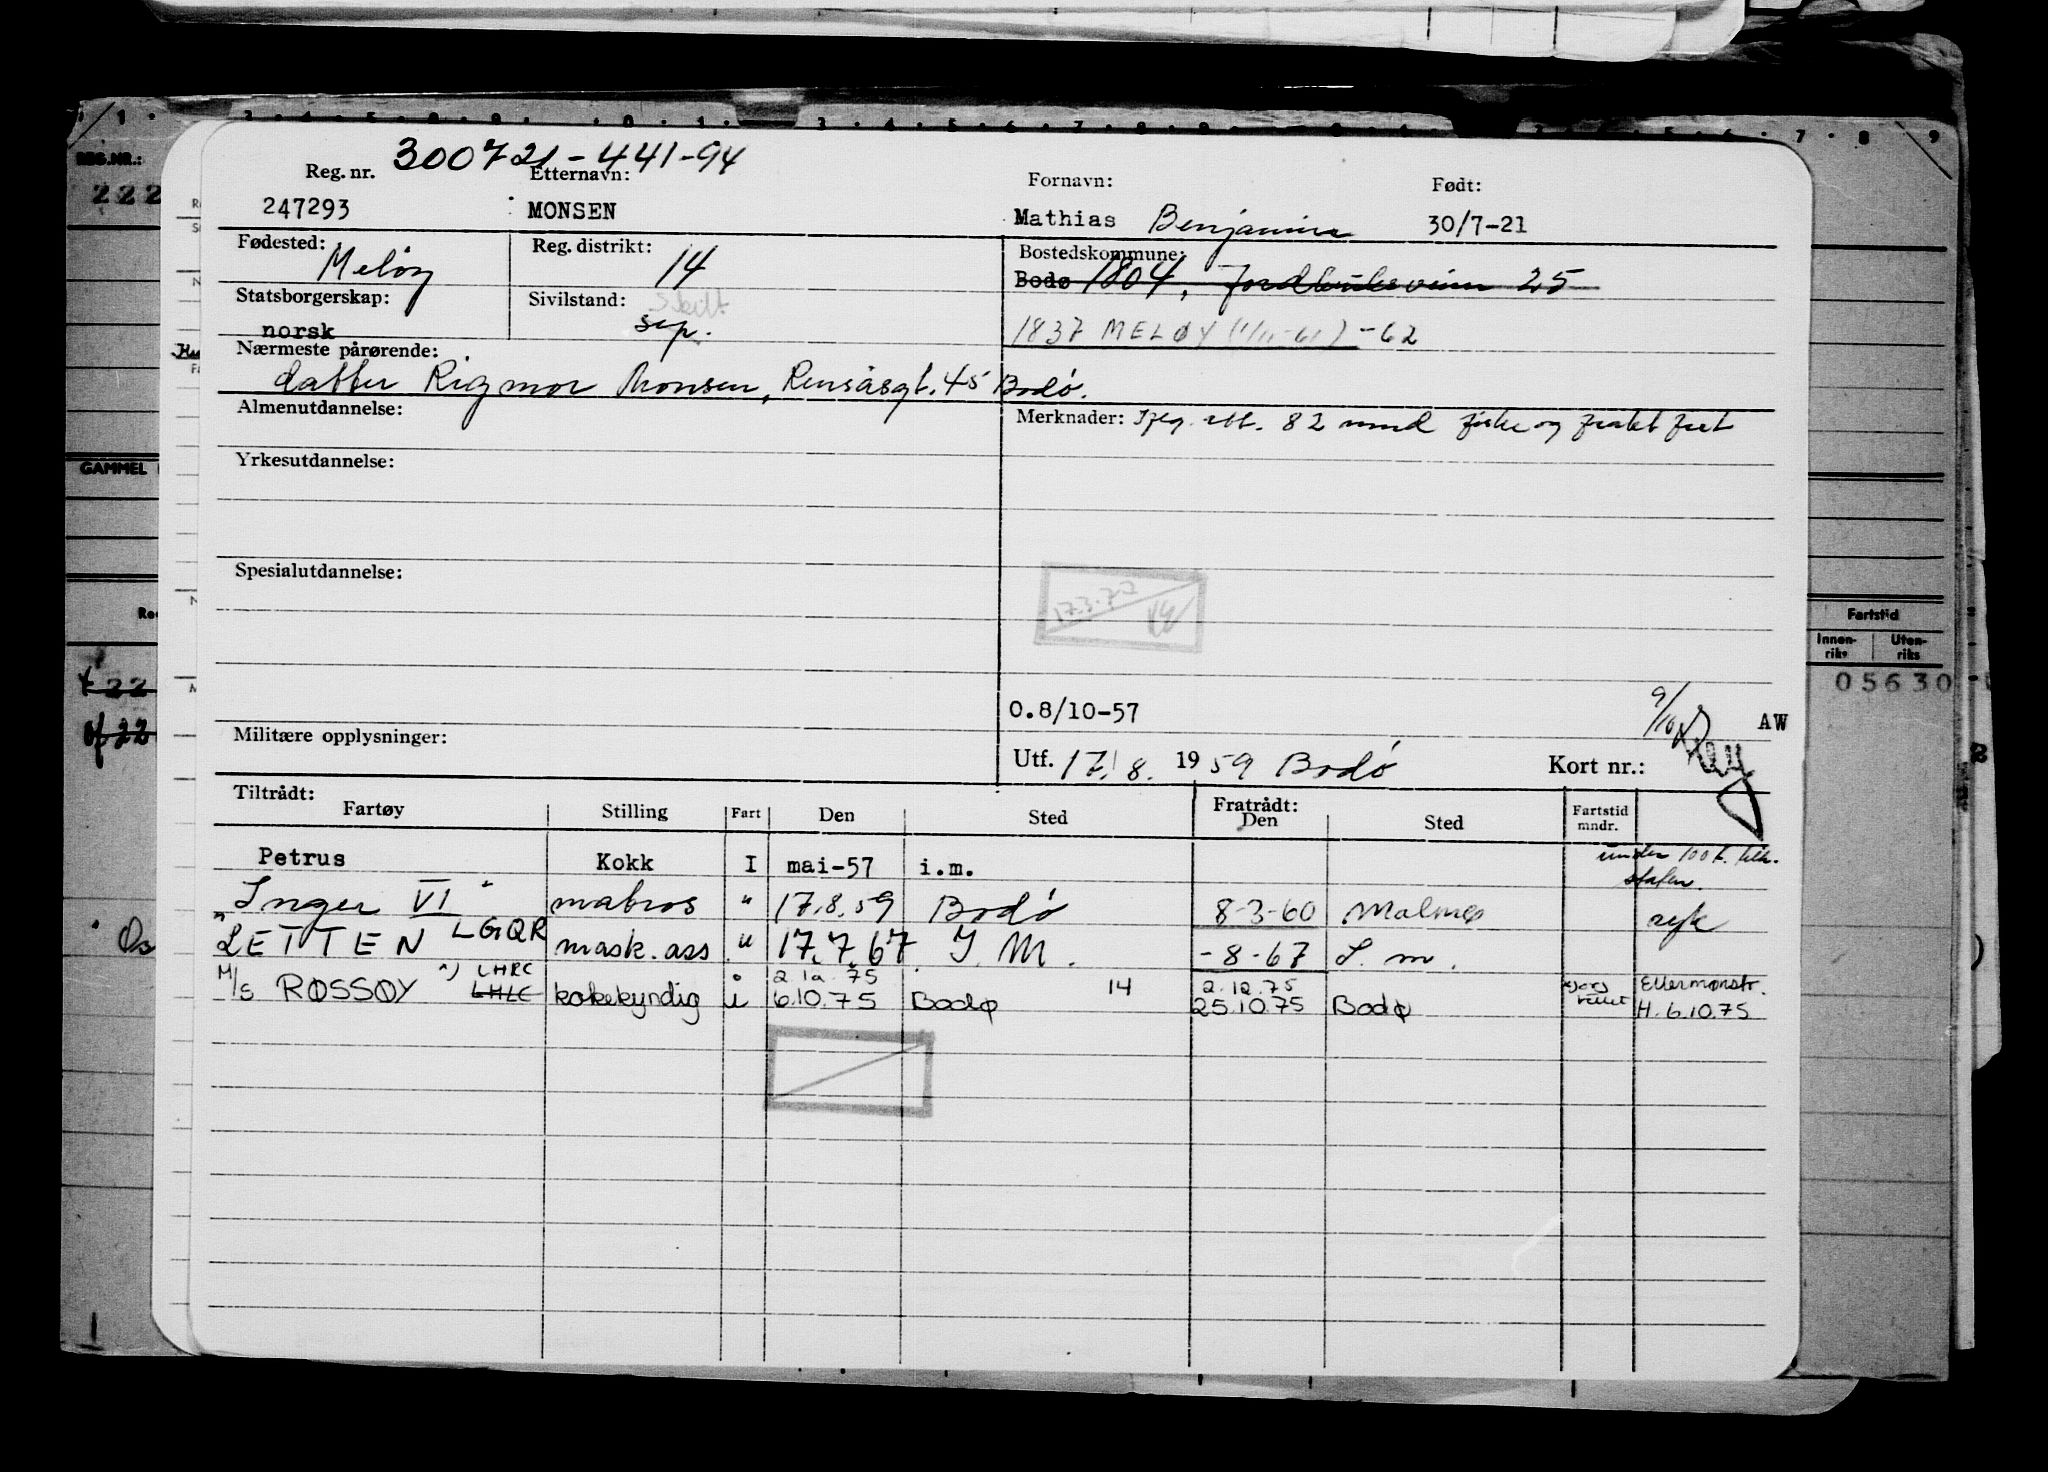 300721-441-94
Reg. nr. Etternavn: Fornavn: Født:
247293 MONSEN Mathias Benjamin 30/7-21
Fødested: Meløy Reg. distrikt: 14 Bostedskommune:
Bodø 1804, 25
Statsborgerskap: norsk Sivilstand: Skilt sep.
1837 MELØY -62
Nærmeste pårørende:
datter Rigmor Monsen, Rensåsgt. 45 Bodø.
Almenutdannelse: Merknader: 82 mnd fiske og
Yrkesutdannelse:
Spesialutdannelse:
17.3.
O.8/10-57 9/10 AW
Militære opplysninger: Utf. 17/8. 1959 Bodø Kort nr.:
Tiltrådt: Fratrådt:
Fartøy Stilling Fart Den Sted Den Sted Fartstid mndr.
Petrus Kokk I mai-57 i.m. under 100
Inger VI " matros " 17.8.59 Bodø 8-3-60 Malmø syk
" LETTEN LGQR mask. ass " 17.7.67 I. M. -8-67 I. m.
M/S RØSSØY LHRC LHLC kokekyndig i 2.12.75 6.10.75 Bodø 14 2.12.75 25.10.75 Bodø Ettermønstr. H. 6.10.75
REG.NR.:
222
GAMMEL
Fartstid
Innen-riks Uten-riks
05630